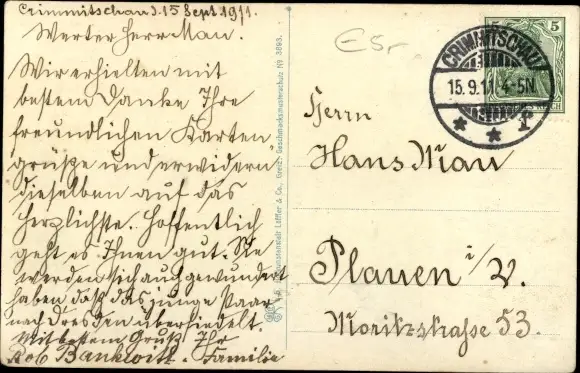 Crimmitschau d. 15 Sept. 1911.
Werter Herr Mau.
Wir erhielten mit
bestem Danke Ihre
freundlichen Karten
grüße und erwidern
dieselben auf das
Herzlichste. Hoffentlich
geht es Ihnen gut. Sie
werden sich auch gewundert
haben daß das junge Paar
nach Dresden übersiedelt.
Mit bestem Gruß Ihr
Rob. Familie
Löffler & Co., Greiz. Geschmacksmusterschutz No 3893.
5 5
CRIMMITSCHAU
15.9.11 4-5N
* * f
Herrn
Hans Mau
Plauen i/V.
Moritzstraße 53.